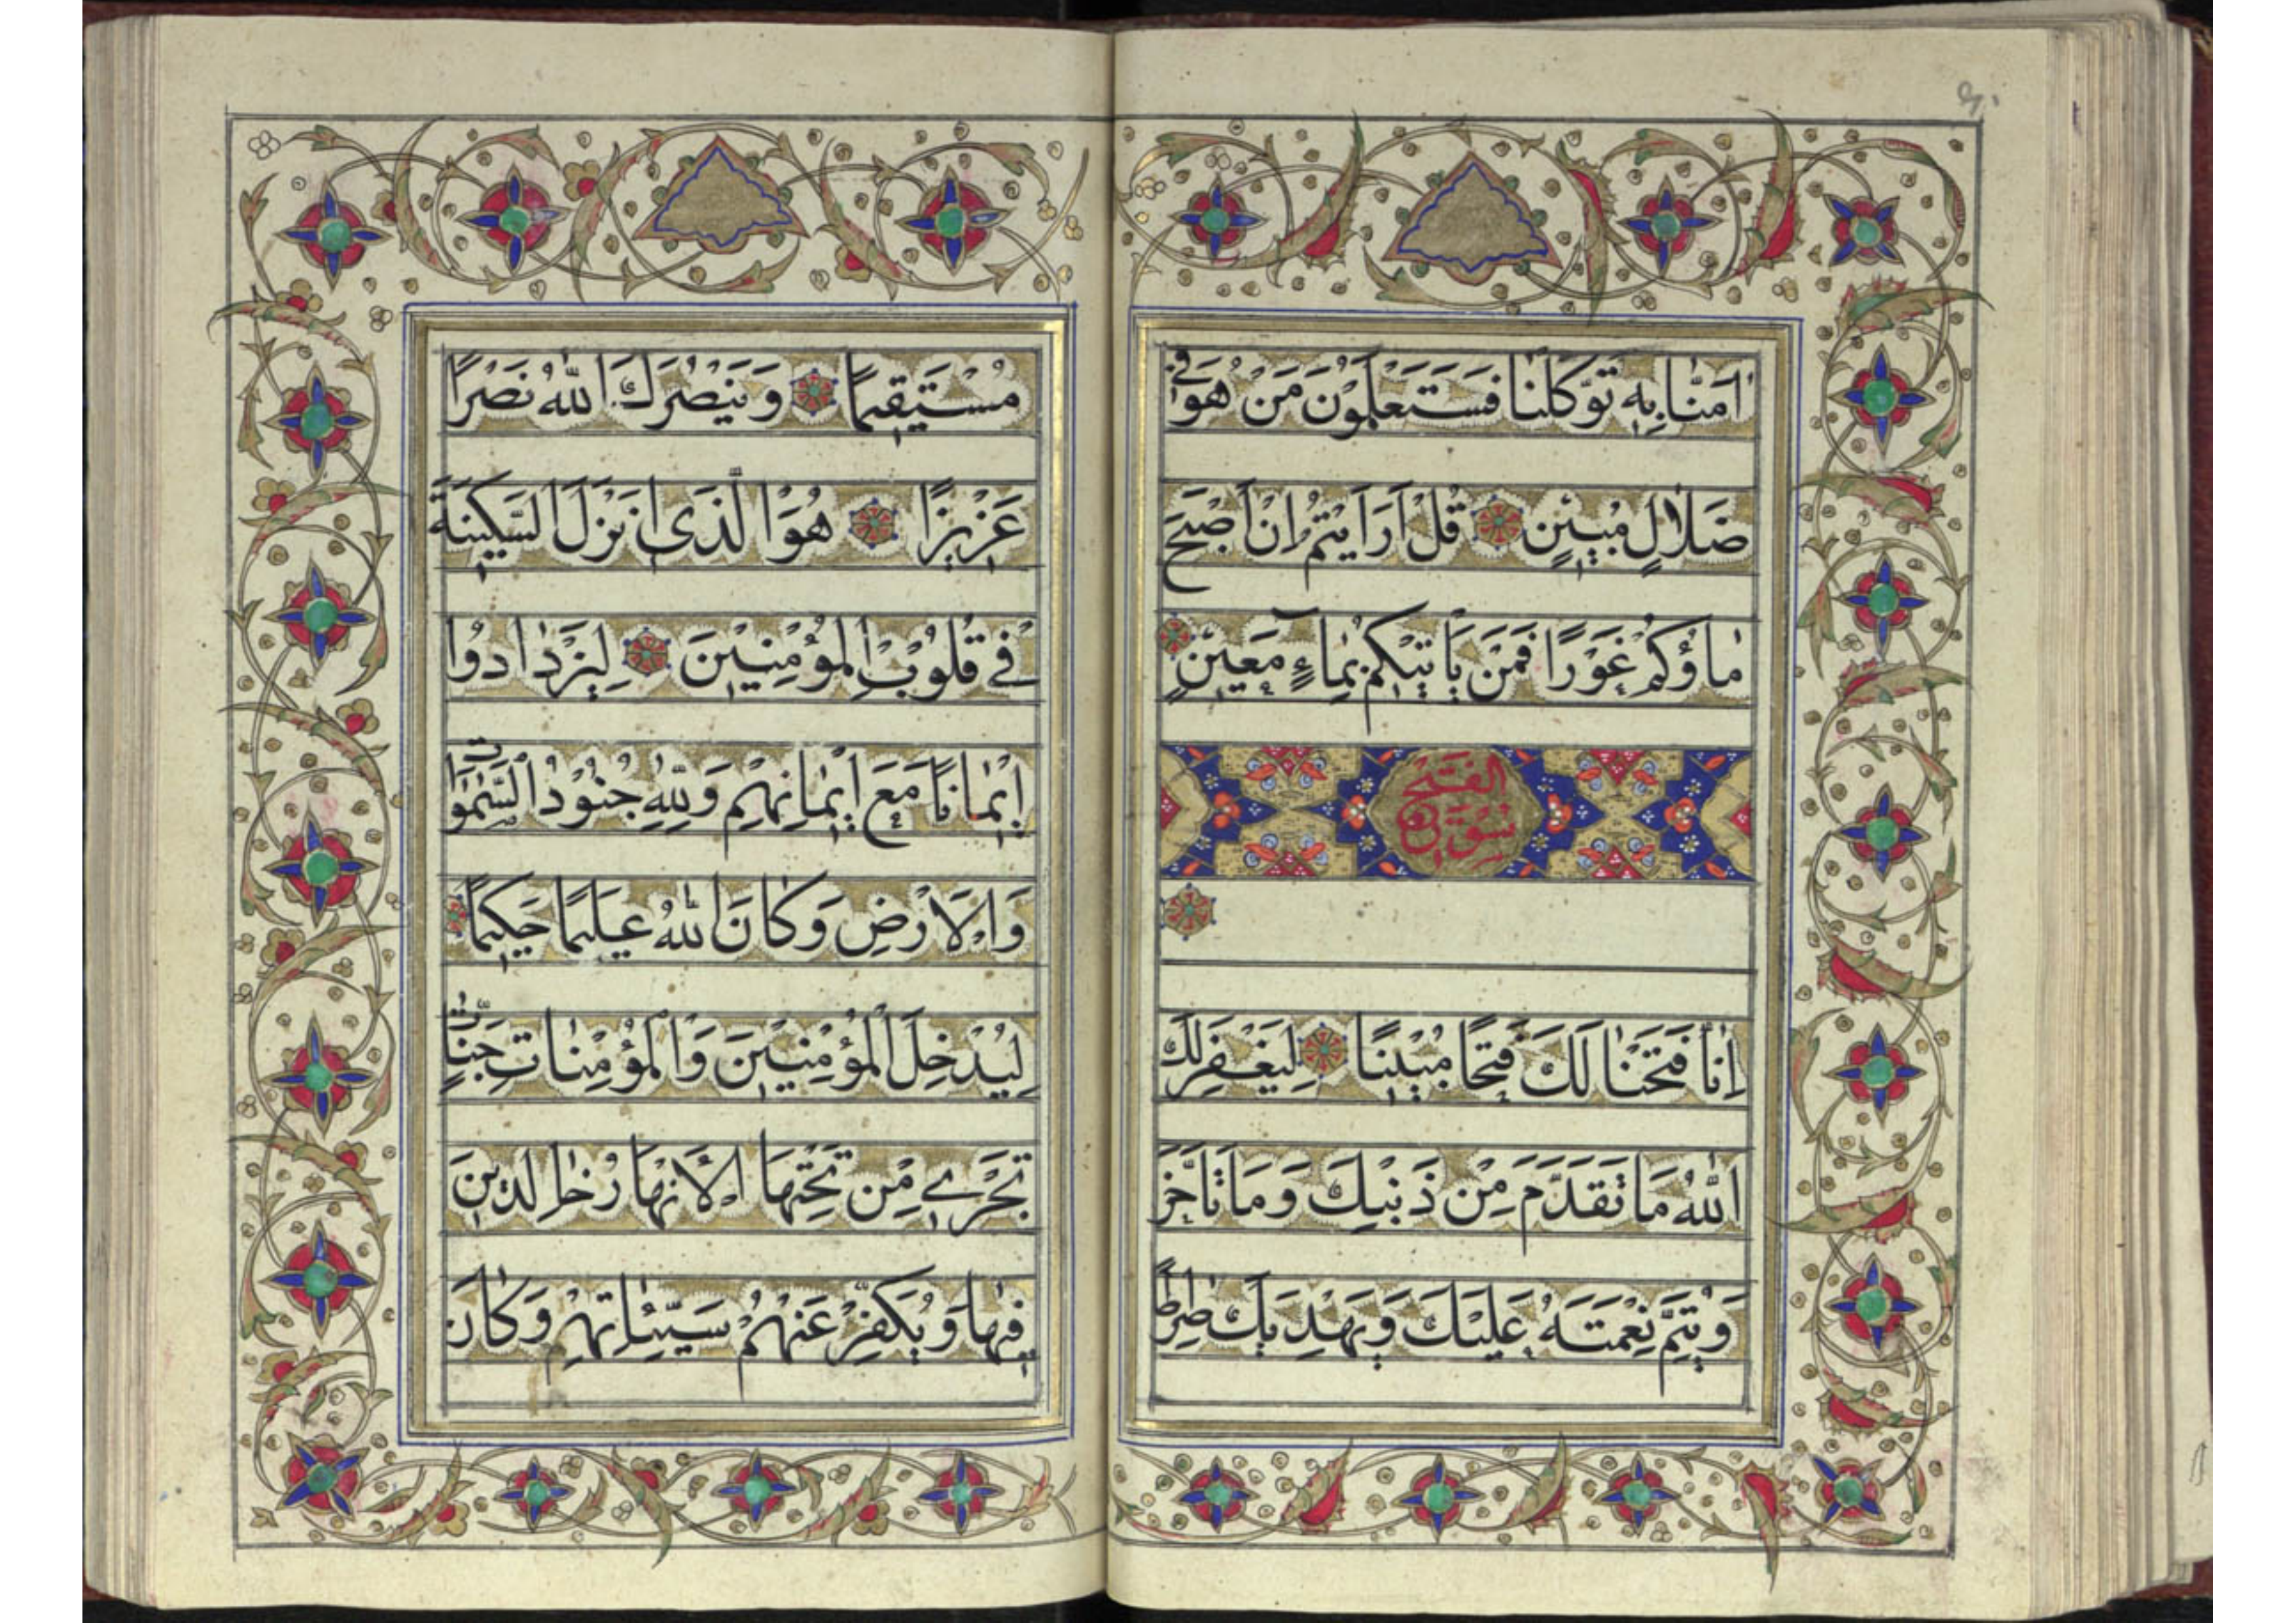 اٰمَنّٰا بِهِ تَوَكَّلْنٰا فَسَتَعْلَمُونَ مَنْ هُوَ فِی
ضَلٰالٍ مُبِیْنٍ قُلْ اَرَاَیْتُمْ اِنْ اَصْبَحَ
مٰاؤُكُمْ غَوْرًا فَمَنْ یَاْتِیْكُمْ بِمٰاءٍ مَعِیْنٍ
سورة الفتح
اِنّٰا فَتَحْنٰا لَكَ فَتْحًا مُبِیْنًا لِیَغْفِرَ لَكَ
اللّٰهُ مٰا تَقَدَّمَ مِنْ ذَنْبِكَ وَمَا تَاَخَّرَ
وَیُتِمَّ نِعْمَتَهُ عَلَیْكَ وَیَهْدِیَكَ صِرٰاطًا
مُسْتَقِیمًا وَیَنْصُرَكَ اللّٰهُ نَصْرًا
عَزِیْزًا هُوَ الَّذی اَنْزَلَ السَّكِینَةَ
فی قُلُوْبِ الْمُؤْمِنِیْنَ لِیَزْدٰادُوا
اِیْمٰانًا مَعَ اِیْمٰانِهِمْ وَلِلّٰهِ جُنُوْدُ السَّمٰوٰاتِ
وَالْاَرْضِ وَكَانَ اللّٰهُ عَلیمًا حَكیمًا
لِیُدْخِلَ الْمُؤْمِنِیْنَ وَالْمُؤْمِنٰاتِ جَنّٰاتٍ
تَجْرِی مِنْ تَحْتِهَا الْاَنْهٰارُ خٰالِدینَ
فیهٰا وَیُكَفِّرَ عَنْهُمْ سَیِّئٰاتِهِمْ وَكَانَ